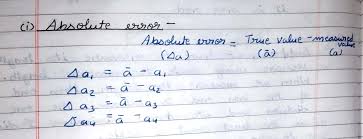 (i) Absolute error -
Absolute error = True value - measured value
(Δa) (ā) (a)
Δa₁ = ā - a₁
Δa₂ = ā - a₂
Δa₃ = ā - a₃
Δa₄ = ā - a₄